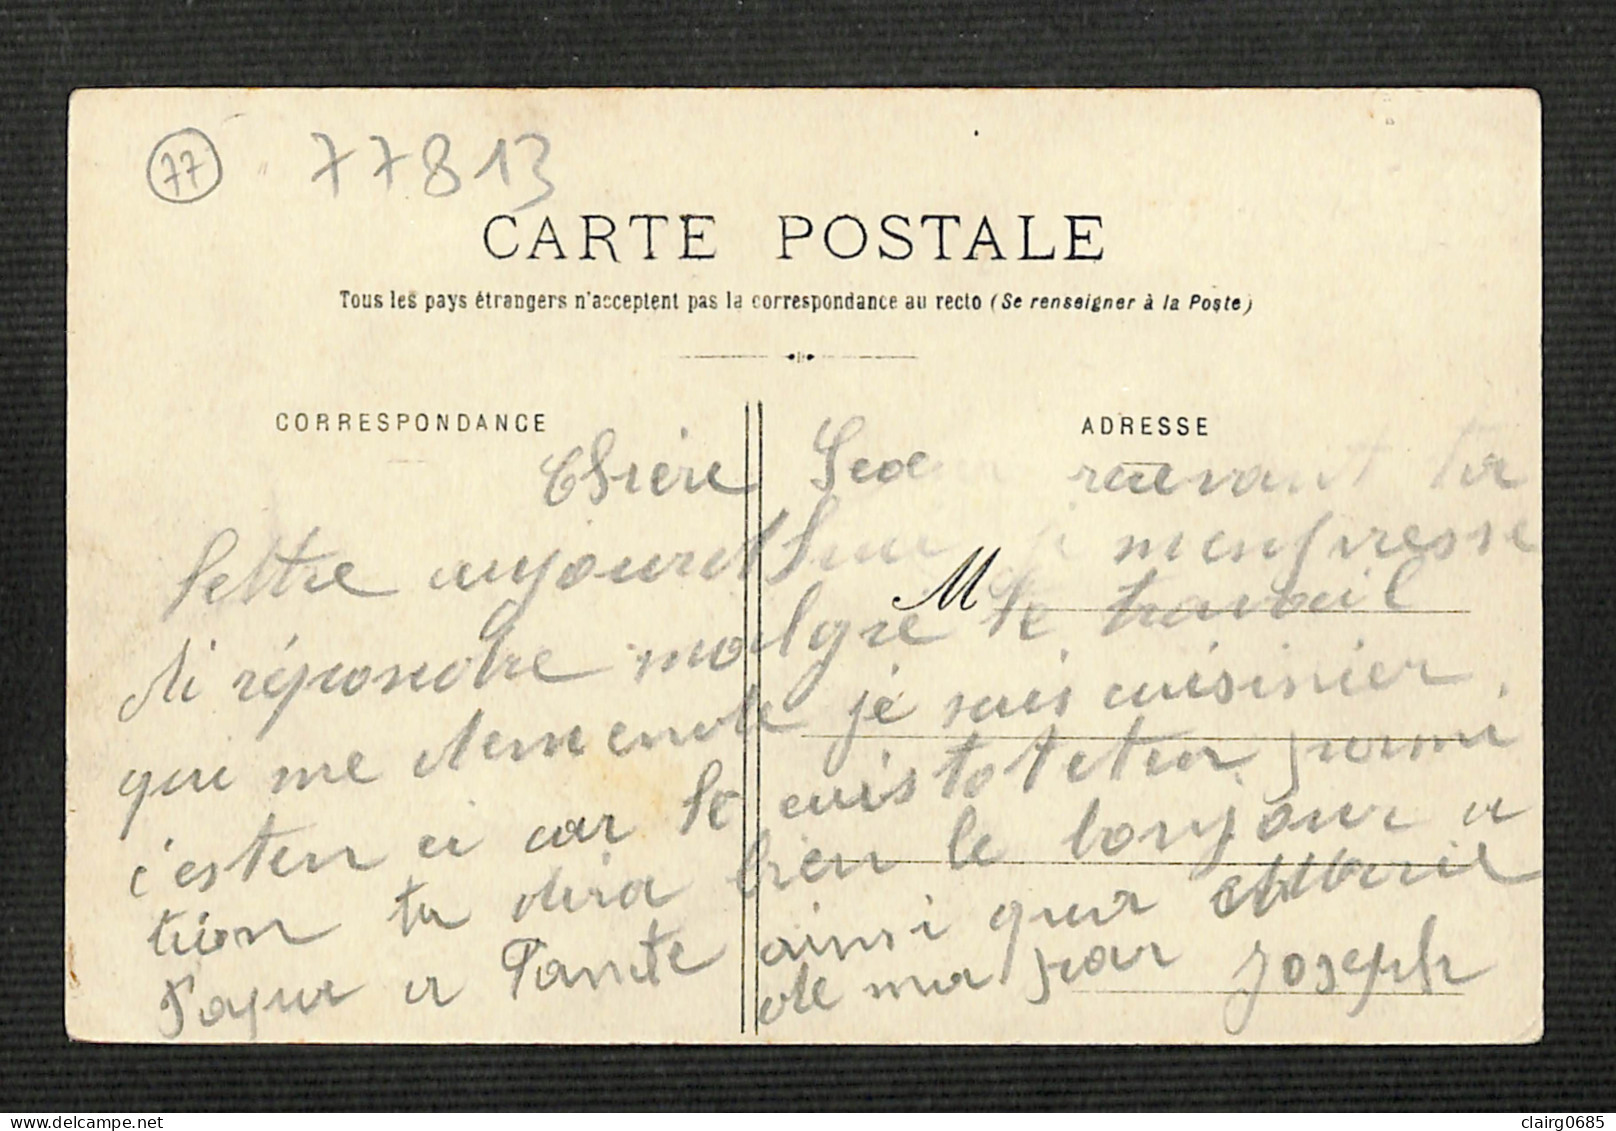 77 77813
CARTE POSTALE
Tous les pays étrangers n'acceptent pas la correspondance au recto (Se renseigner à la Poste)
CORRESPONDANCE
ADRESSE
M
Chère Seoeur recevant ta
lettre aujourd'hui je m'enpresse
di répondre malgre le travail
qui me demende je suis cuisinier
c'est en ci car le cuistot est en permi
tion tu dira bien le bonjour a
a Tante ainsi qua
de ma par Joseph
clairg0685
delcampe.net